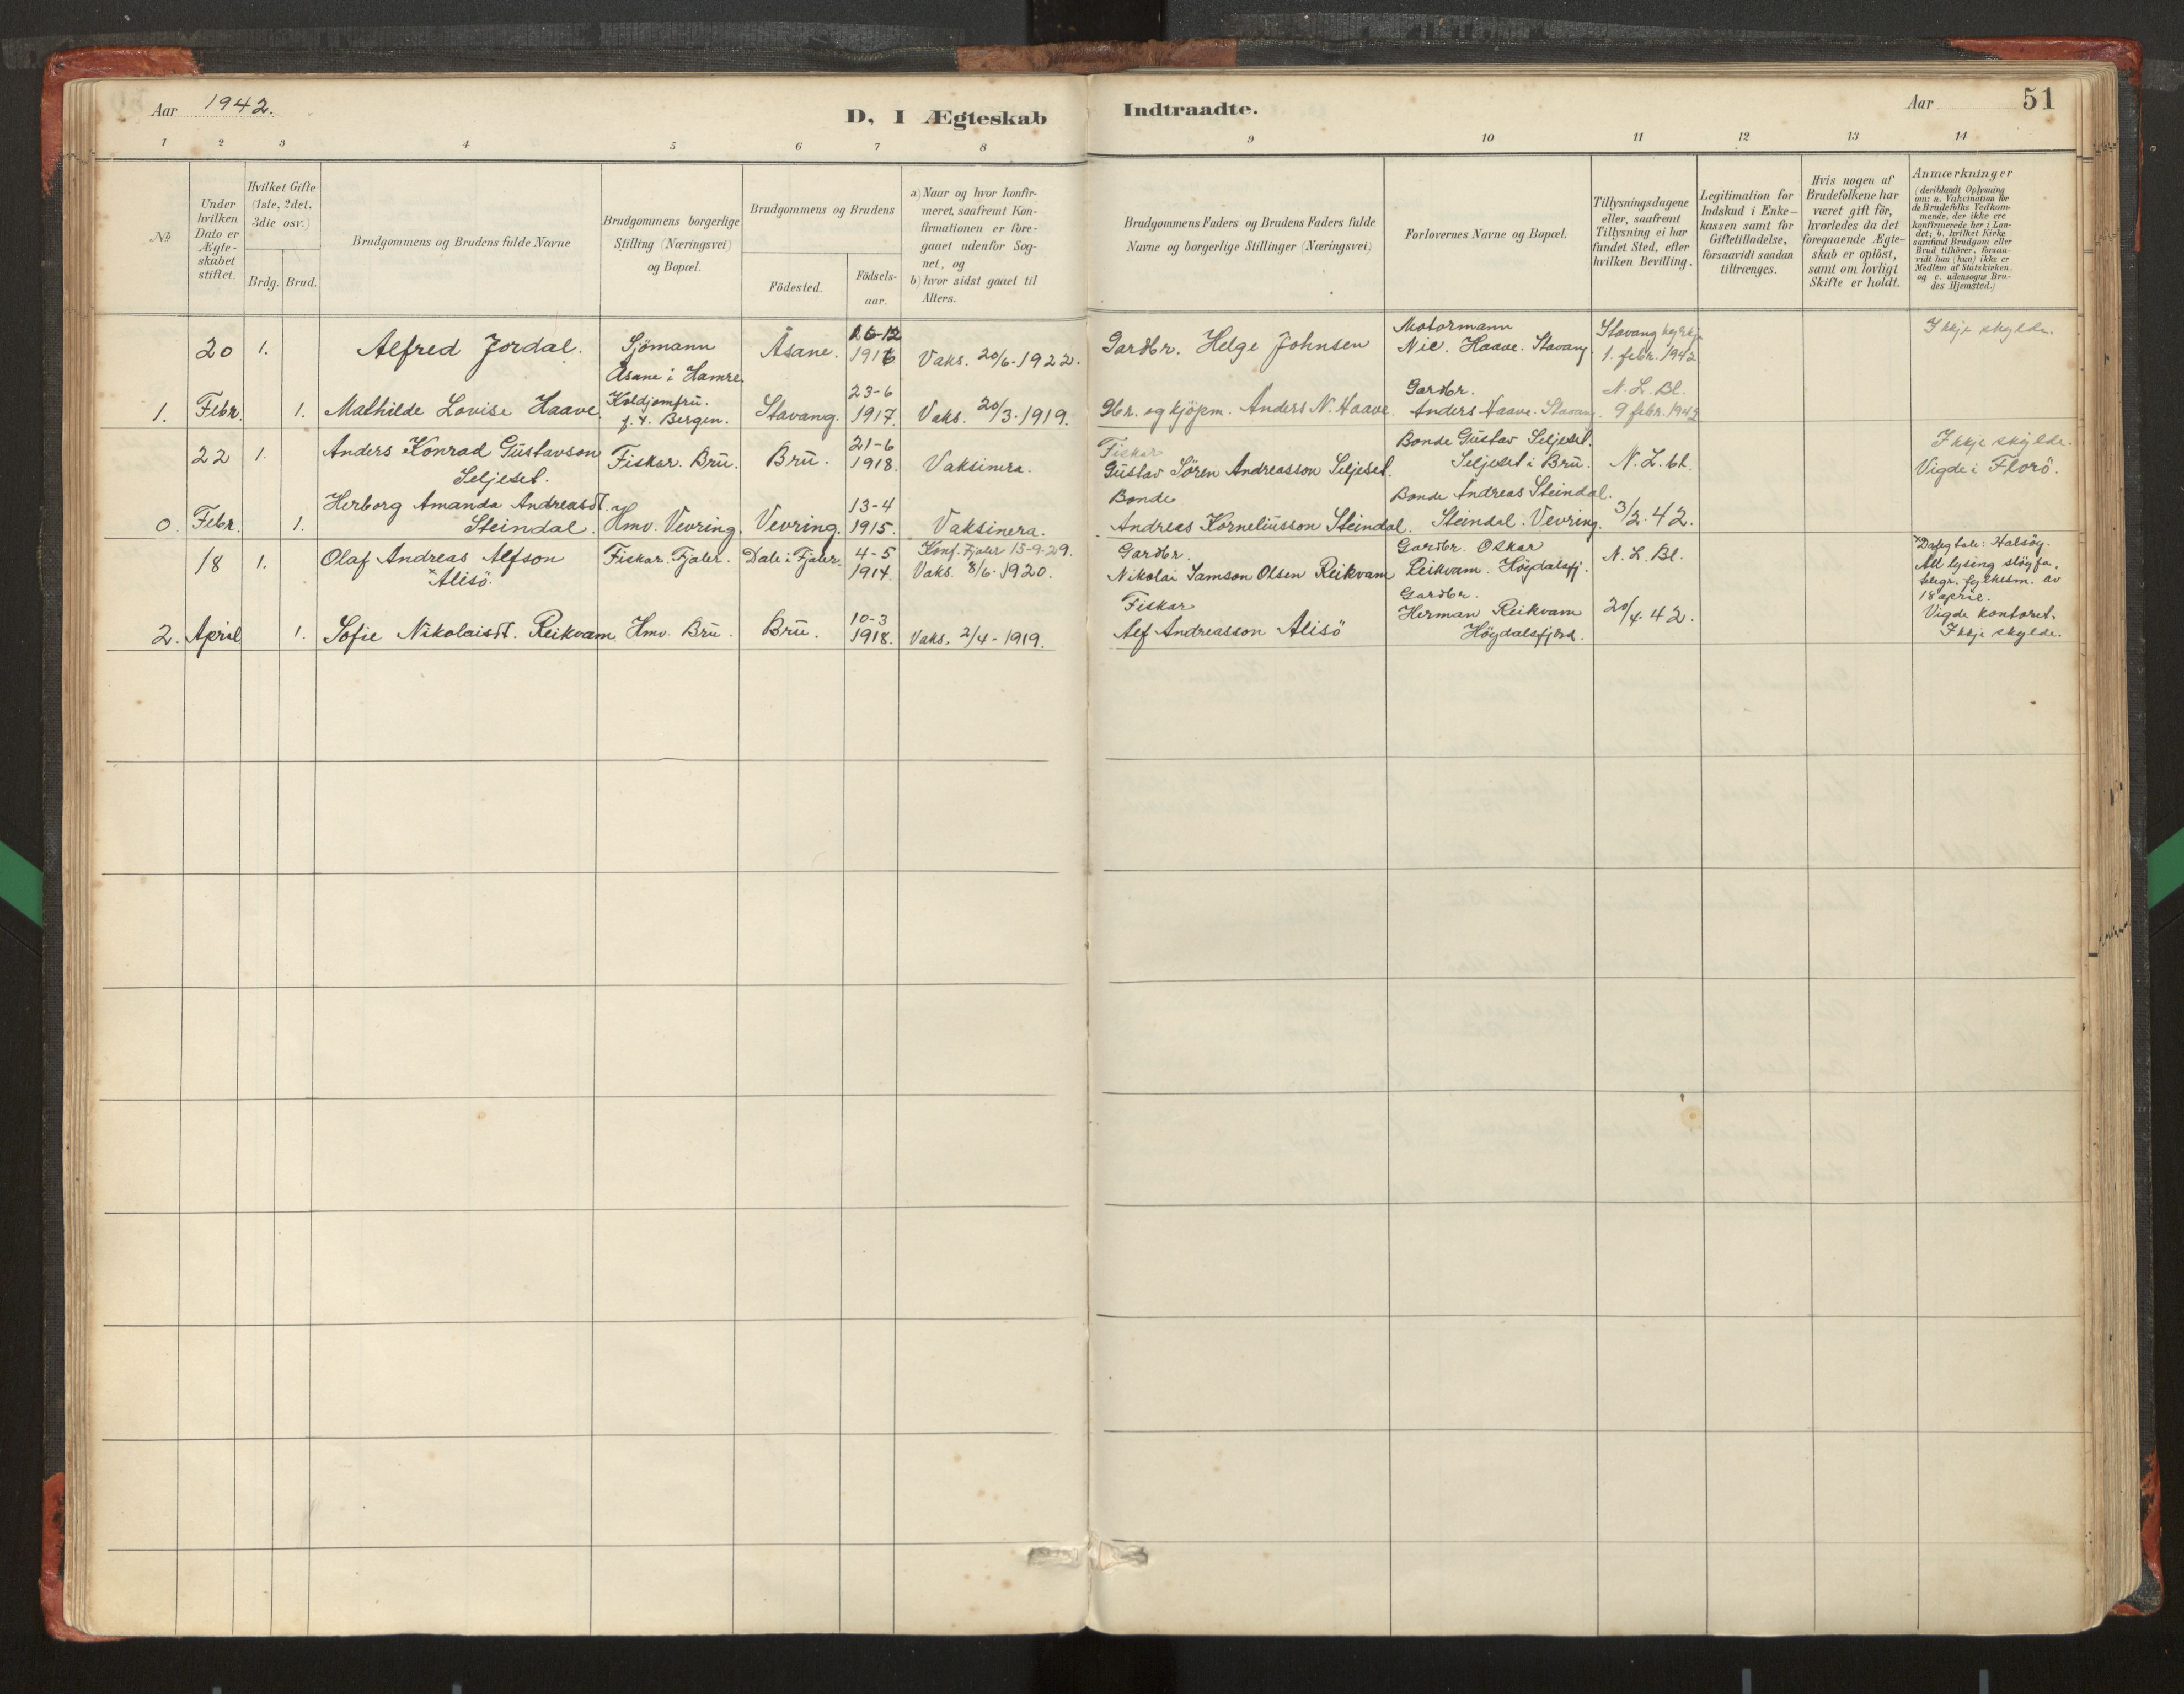 Aar 1942.
D, I Ægteskab Indtraadte.
Aar 51
1 2 3 4 5 6 7 8 9 10 11 12 13 14
№
Under hvilken Dato er Ægte-skabet stiftet.
Hvilket Gifte (1ste, 2det, 3die osv.)
Brdg. Brud.
Brudgommens og Brudens fulde Navne
Brudgommens borgerlige Stilling (Næringsvei) og Bopæl.
Brudgommens og Brudens
Födested.
Födsels-aar.
a) Naar og hvor konfir-meret, saafremt Kon-firmationen er fore-gaaet udenfor Sog-net, og
b) hvor sidst gaaet til Alters.
Brudgommens Faders og Brudens Faders fulde Navne og borgerlige Stillinger (Næringsvei)
Forlovernes Navne og Bopæl.
Tillysningsdagene eller, saafremt Tillysning ei har fundet Sted, efter hvilken Bevilling.
Legitimation for Indskud i Enke-kassen samt for Giftetilladelse, forsaavidt saadan tiltrænges.
Hvis nogen af Brudefolkene har været gift för, hvorledes da det foregaaende Ægte-skab er oplöst, samt om lovligt Skifte er holdt.
Anmærkninger (deriblandt Oplysning om: a. Vakcination for de Brudefolks Vedkom-mende, der ikke ere konfirmerede her i Lan-det; b. hvilket Kirke samfund Brudgom eller Brud tilhörer, forsaa-vidt han (hun) ikke er Medlem af Statskirken, og c. udensogns Bru-des Hjemsted.)
20 1. Alfred Jordal. Sjömann Åsane i Hamre. Åsane. 16-12 1916 Vaks. 20/6-1922. Gardbr. Helge Johnsen Motormann Nic. Haave. Stavang. Stavang 1. febr. 1942 Ikkje skylde.
1. Febr. 1. Mathilde Lovise Haave Koldjomfru. f. t. Bergen. Stavang. 23-6 1917. Vaks. 20/3-1919. Gbr. og kjöpm. Anders N. Haave. Gardbr. Anders Haave. Stavang. N. L. Bl. 9 febr. 1942
22 1. Anders Konrad Gustavson Seljeset. Fiskar. Bru. Bru. 21-6 1918. Vaksinera. Fiskar Gustav Sören Andreasson Seljeset. Bonde Gustav Seljeset. Seljeset i Bru. N. L. bl. Ikkje skylde. Vigde i Florö.
0. Febr. 1. Herborg Amanda Andreasdt. Steindal. Hmv. Vevring. Vevring. 13-4 1915. Vaksinera. Bonde Andreas Korneliusson Steindal. Bonde Andreas Steindal. Steindal. Vevring. 3/2.42.
18 1. Olaf Andreas Alfson × Alisö. Fiskar. Fjaler. Dale i Fjaler. 4-5 1914. Konf. Fjaler 15-9-29. Vaks. 8/6-1920. Gardbr. Nikolai Samson Olsen Reikvam Gardbr. Oskar Reikvam. Höydalsfj. N. L. Bl. × Halsöy. All lysing slöyfa, telegr. fylkesm. av 18 april.
2. April 1. Sofie Nikolaisdt. Reikvam Hmv. Bru. Bru. 10-3 1918. Vaks. 2/4-1919. Fiskar Alf Andreasson Alisö Gardbr. Herman Reikvam Höydalsfjord. 20/4.42. Vigde kontoret. Ikkje skylde.